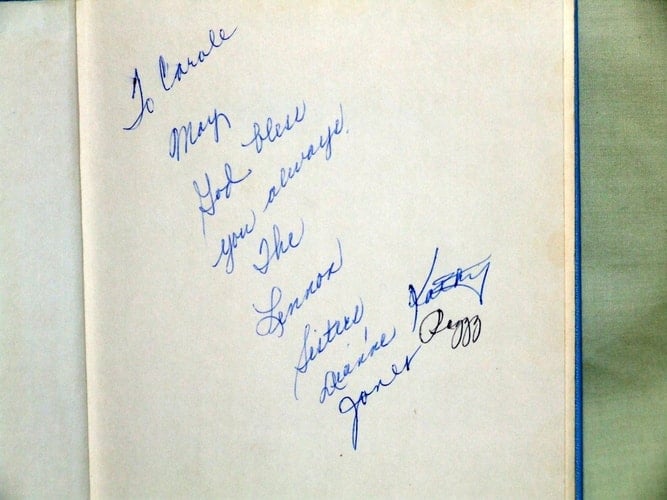 To Carole
May
God bless
you always.
The
Lennon
Sisters
Dianne Kathy
Janet Peggy